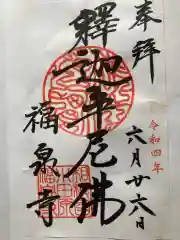 奉拝
令和四年
六月廿六日
釋迦牟尼佛
福泉寺